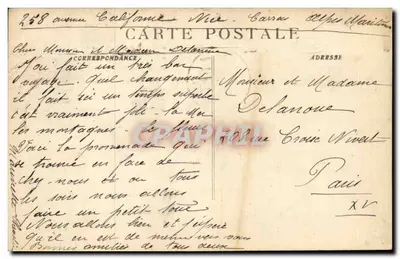 258 avenue Californie Nice Carras Alpes Marit
CARTE POSTALE
CORRESPONDANCE
ADRESSE
Cher Monsieur et Madame Delanoue
fait un très bon
voyage quel changement
il fait ici un temps superbe
c'est vraiment joli la Mer
les montagnes
la promenade que
se trouve en face de
chez nous où tous
les soirs nous allons
faire un petit tour
Nous allons bien et j'espère
qu'il en est de même vous
Bonnes amitiés de tous deux
Monsieur et Madame
Delanoue
rue Croix Nivert
Paris
XV